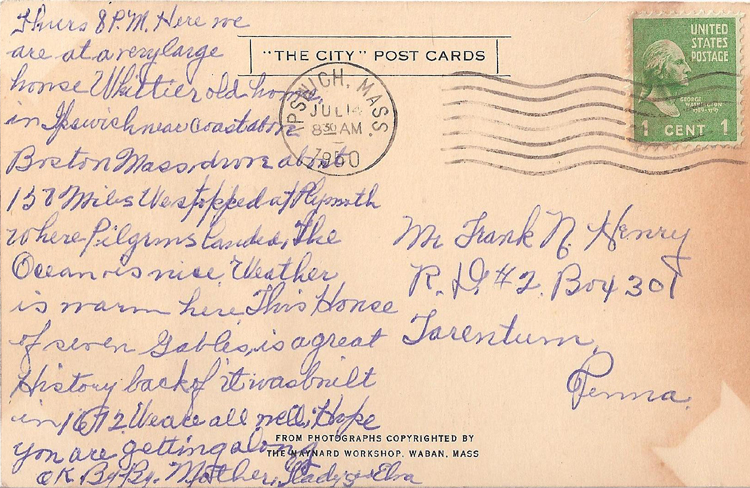 Thurs 8 P.M. Here we
are at a very large
house Whittier old home
in Ipswich near coast above
Boston Mass, drove about
150 Miles We stopped at Plymouth
where Pilgrims landed, The
Ocean is nice. Weather
is warm here. This House
of seven Gables, is a great
History back of it was built
in 1672. We are all well, Hope
you are getting along
OK By-By. Mother, Gladys & Elva
"THE CITY" POST CARDS
IPSWICH, MASS.
JUL 14
8 30 AM
1950
UNITED
STATES
POSTAGE
GEORGE
WASHINGTON
1789-1797
1 CENT 1
Mr Frank N. Henry
R. D. #2. Box 301
Tarentum,
Penna.
FROM PHOTOGRAPHS COPYRIGHTED BY
THE MAYNARD WORKSHOP, WABAN, MASS